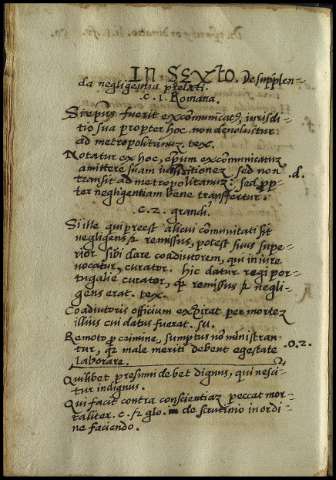 IN SEXTO. De supplen-
da negligentia prelati.
c. 1. Romana.
Si epūs fuerit excōmunicatꝰ, iurisdi-
tio sua propter hoc non devolvitur
ad metropolitanuz tex.
Notatur ex hoc, epum excommunicatuz
amittere suam iurisditionez sed non .d.
transit ad metropolitanuz: sed pp-
ter negligentiam bene transffertur.
c. 2. grandi.
Si ille qui preest alicui cōmunitati sit
negligens l remissus, potest suus supe-
rior sibi dare coadiutorem, qui in iure
vocatur, curator. hic datur regi por-
tugalie curator, qȝ remissus l negli-
gens erat. tex.
Coadiutoris officium expirat per mortez
illius cui datus fuerat. su.
Remoto p crimine, sumptus nō ministran-
tur, qȝ male meriti debent egestate .0.2.
laborare.
Quilibet presumi debet dignus, qui nesci-
tur indignus.
Qui facit contra conscientiaz peccat mor-
taliter. c. fi 2 glo. de scrutinio in ordi-
ne faciendo.